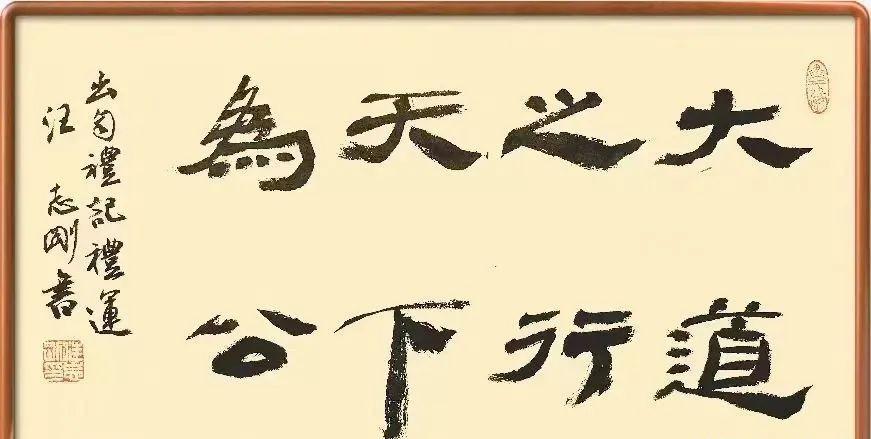 大道
之行
天下
為公
出自禮記禮運
汪志剛書